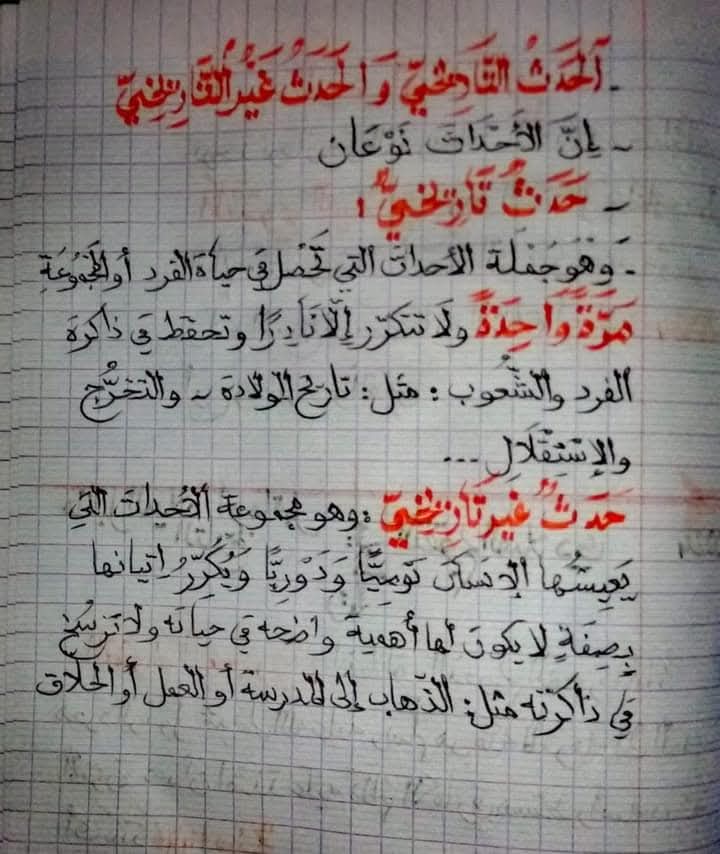 - اَلْحَدَثُ التَّارِيخِيّ وَالْحَدَثُ غَيْرُ التَّارِيخِيّ
- إِنَّ الأَحْدَاثَ نَوْعَان
- حَدَثٌ تَارِيخِيٌّ :
- وَهُوَ جُمْلَة الأحداث التي تَحْصُل في حياة الفرد أو المَجْمُوعَةِ
مَرَّةً وَاحِدَةً ولَا تتكرّر إِلَّا نَادِرًا وتحفظ في ذاكرة
الفرد والشُّعوب : مثل : تاريخ الولادة - والتخرُّج
والإسْتِقْلَالِ ...
حَدَثٌ غير تَارِيخِيّ : وهو مجموعة الأحداث التي
يَعِيشُها الإنسان يَوْمِيًّا وَدَوْرِيًّا وَيُكَرِّرُ إتيانها
بِصِفَةٍ لا يكون لها أهمية واضحة في حياته ولا تَرْسُخ
في ذاكرته مثل : الذّهاب إلى المدرسة أو العمل أو الحلاق